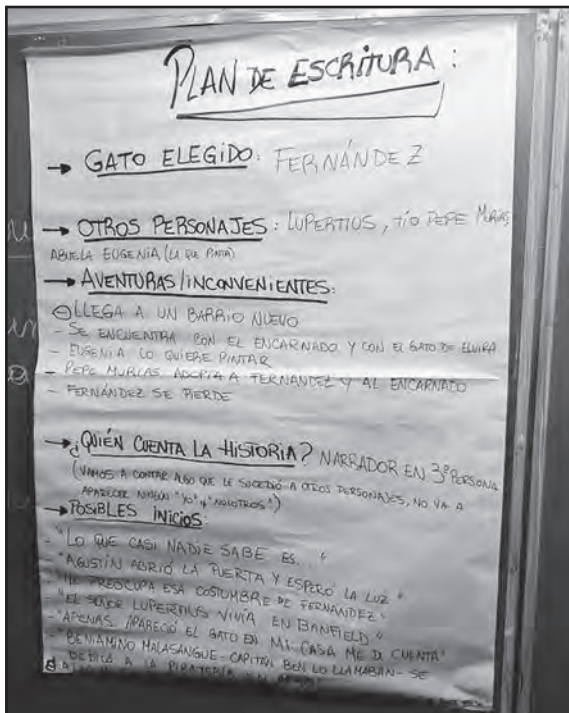 PLAN DE ESCRITURA:
→ GATO ELEGIDO: FERNÁNDEZ
→ OTROS PERSONAJES: LUPERTIUS, TÍO PEPE MURIAS,
ABUELA EUGENIA (LA QUE PINTA)
→ AVENTURAS/INCONVENIENTES:
LLEGA A UN BARRIO NUEVO
- SE ENCUENTRA CON EL ENCARNADO Y CON EL GATO DE ELVIRA
- EUGENIA LO QUIERE PINTAR
- PEPE MURIAS ADOPTA A FERNÁNDEZ Y AL ENCARNADO
- FERNÁNDEZ SE PIERDE
→ ¿QUIÉN CUENTA LA HISTORIA? NARRADOR EN 3º PERSONA
(VAMOS A CONTAR ALGO QUE LE SUCEDIÓ A OTROS PERSONAJES, NO VA A
APARECER NINGÚN "YO" "NOSOTROS")
→ POSIBLES INICIOS:
- "LO QUE CASI NADIE SABE ES... "
- "AGUSTÍN ABRIÓ LA PUERTA Y ESPERÓ LA LUZ "
- "ME PREOCUPA ESA COSTUMBRE DE FERNÁNDEZ"
- "EL SEÑOR LUPERTIUS VIVÍA EN BANFIELD "
- "APENAS APARECIÓ EL GATO EN MI CASA ME DI CUENTA"
- "BENIAMINO MALASANGUE - CAPITÁN BEN LO LLAMABAN - SE
DEDICA A LA PIRATERÍA